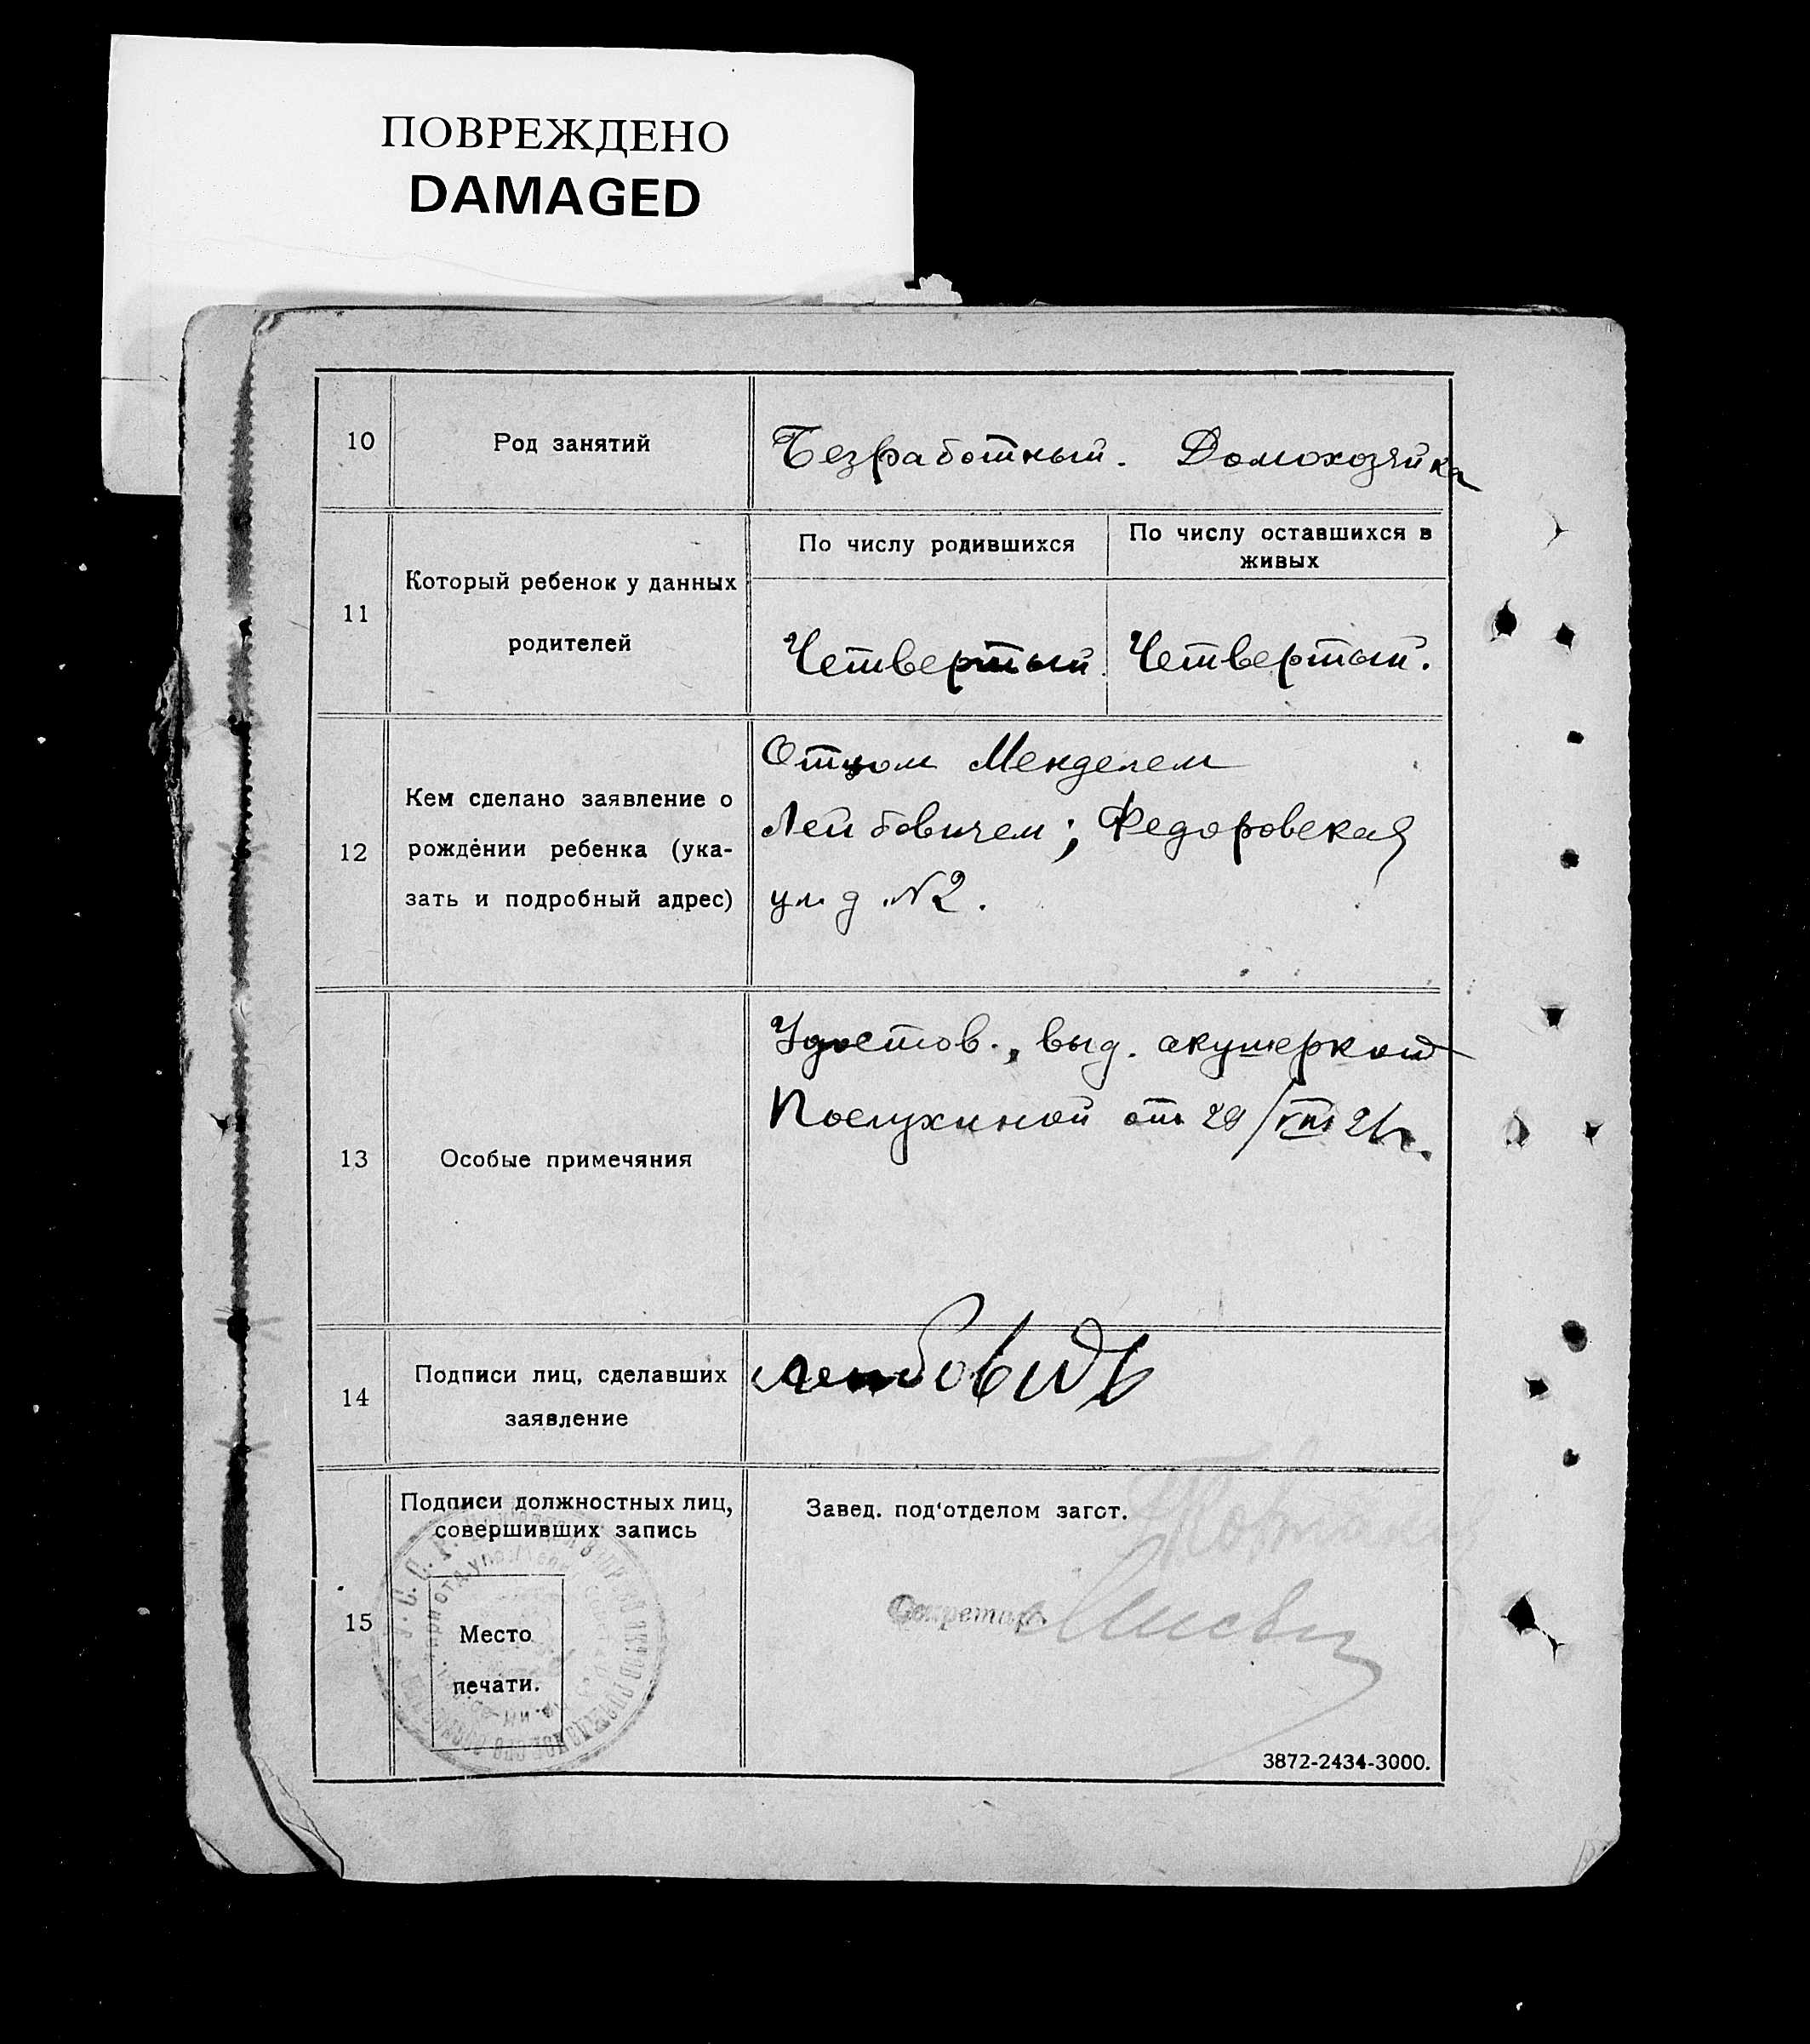 ПОВРЕЖДЕНО
DAMAGED
10
Род занятий
Безработный. Домохозяйка
11
Который ребенок у данных
родителей
По числу родившихся
По числу оставшихся в
живых
Четвертый.
Четвертый.
12
Кем сделано заявление о
рождении ребенка (ука-
зать и подробный адрес)
Отцом Менделем
Лейбовичем; Федоровская
ул д №2.
13
Особые примечяния
Удостов., выд. акушеркой
Послухиной от 29/VIII 21г.
14
Подписи лиц, сделавших
заявление
Лейбовичъ
15
Подписи должностных лиц,
совершивших запись
Место
печати.
Завед. под'отделом загст.
Секретарь
3872-2434-3000.